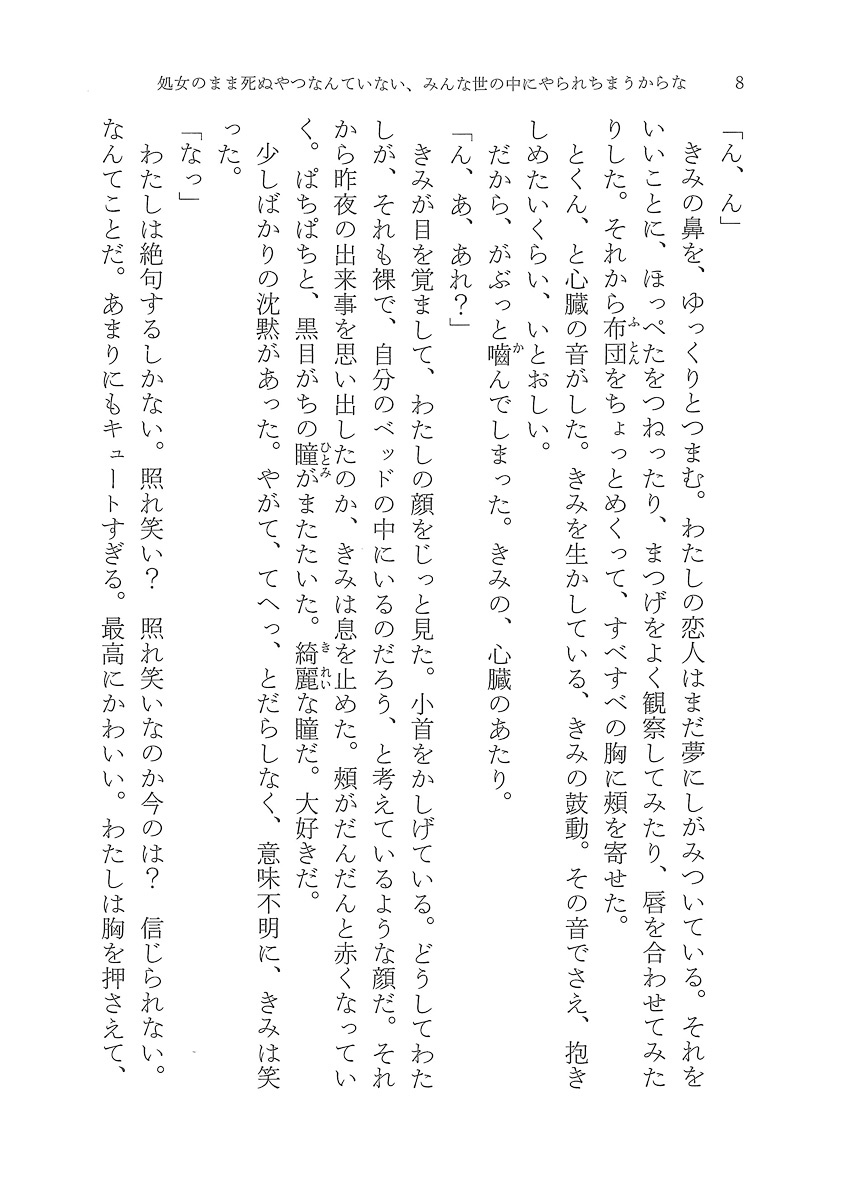 処女のまま死ぬやつなんていない、みんな世の中にやられちまうからな 8
「ん、ん」
きみの鼻を、ゆっくりとつまむ。わたしの恋人はまだ夢にしがみついている。それを
いいことに、ほっぺたをつねったり、まつげをよく観察してみたり、唇を合わせてみた
りした。それから布団をちょっとめくって、すべすべの胸に頰を寄せた。
とくん、と心臓の音がした。きみを生かしている、きみの鼓動。その音でさえ、抱き
しめたいくらい、いとおしい。
だから、がぶっと嚙んでしまった。きみの、心臓のあたり。
「ん、あ、あれ？」
きみが目を覚まして、わたしの顔をじっと見た。小首をかしげている。どうしてわた
しが、それも裸で、自分のベッドの中にいるのだろう、と考えているような顔だ。それ
から昨夜の出来事を思い出したのか、きみは息を止めた。頰がだんだんと赤くなってい
く。ぱちぱちと、黒目がちの瞳がまたたいた。綺麗な瞳だ。大好きだ。
少しばかりの沈黙があった。やがて、てへっ、とだらしなく、意味不明に、きみは笑
った。
「なっ」
わたしは絶句するしかない。照れ笑い？　照れ笑いなのか今のは？　信じられない。
なんてことだ。あまりにもキュートすぎる。最高にかわいい。わたしは胸を押さえて、